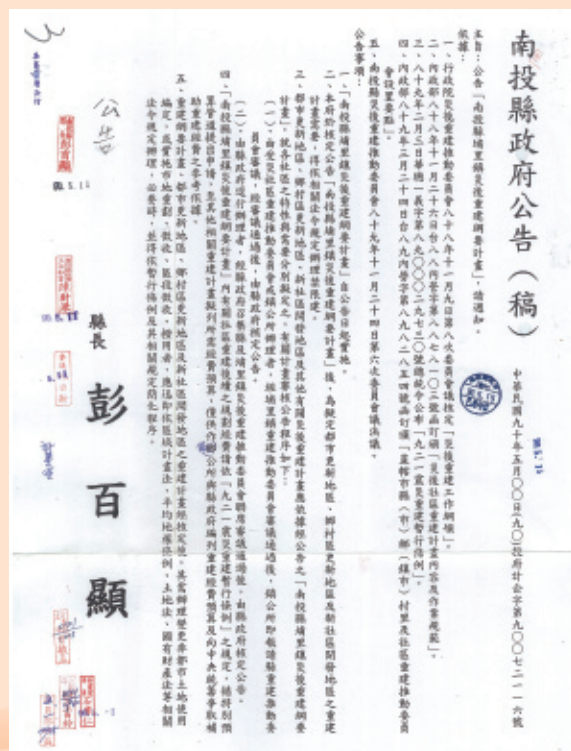 南投縣政府公告（稿）
中華民國九十年五月〇〇日九〇投府計公字第九〇〇七二一一六號
主旨：公告「南投縣埔里鎮災後重建綱要計畫」，請週知。
依據：
一、行政院災後重建推動委員會八十八年十一月九日第八次委員會議核定「災後重建工作綱領」。
二、內政部八十八年十一月二十六日台八八內營字第八八七八一〇三號函訂頒「災後社區重建計畫內容及作業規範」。
三、八十九年二月三日總統華總一義字第八九〇〇〇二九七三〇號總統令公布「九二一震災重建暫行條例」。
四、內政部八十九年三月二十四日台八九內營字第八九八二八五四號函訂頒「直轄市縣（市）鄉（鎮市）村里及社區重建推動委員
會設置要點」。
五、南投縣災後重建推動委員會八十九年十一月二十四日第六次委員會議決議。
公告事項：
一、「南投縣埔里鎮災後重建綱要計畫」自公告日起實施。
二、本府於核定公告「南投縣埔里鎮災後重建綱要計畫」後，為擬定都市更新地區、鄉村區更新地區及新社區開發地區之重建
計畫需要，得依相關法令規定辦理禁限建。
三、都市更新地區、鄉村區更新地區、新社區開發地區及其他有關災後重建計畫應依據經公告之「南投縣埔里鎮災後重建綱要
計畫」，就各社區之特性與需要分別擬定之。有關計畫審核公告程序如下：
（一）、由受災社區重建推動委員會或鎮公所辦理者，經埔里鎮重建推動委員會審議通過後，鎮公所即報請縣重建推動委
員會審議，經審議通過後，由縣政府核定公告。
（二）、由縣政府逕行辦理者，經縣政府召集縣及埔里鎮災後重建推動委員會聯席審議通過後，由縣政府核定公告。
四、「南投縣埔里鎮災後重建綱要計畫」內有關社區重建後續之規劃經費請依「九二一震災重建暫行條例」之規定，循特別預
算管道提報申請，至其他相關重建計畫表列所需經費預算，僅供作鎮公所與縣政府編列重建經費預算及向中央統籌爭取補
助重建經費之參考依據。
五、重建綱要計畫、都市更新地區、鄉村區更新地區及新社區開發地區之重建計畫經核定後，其需辦理變更非都市土地使用
編定，或實施市地重劃、徵收、區段徵收、撥用者，應迅即依區域計畫法、平均地權條例、土地法、國有財產法等相關
法令規定辦理，必要時，並得依暫行條例及其相關規定簡化程序。
縣長　彭百顯
公告